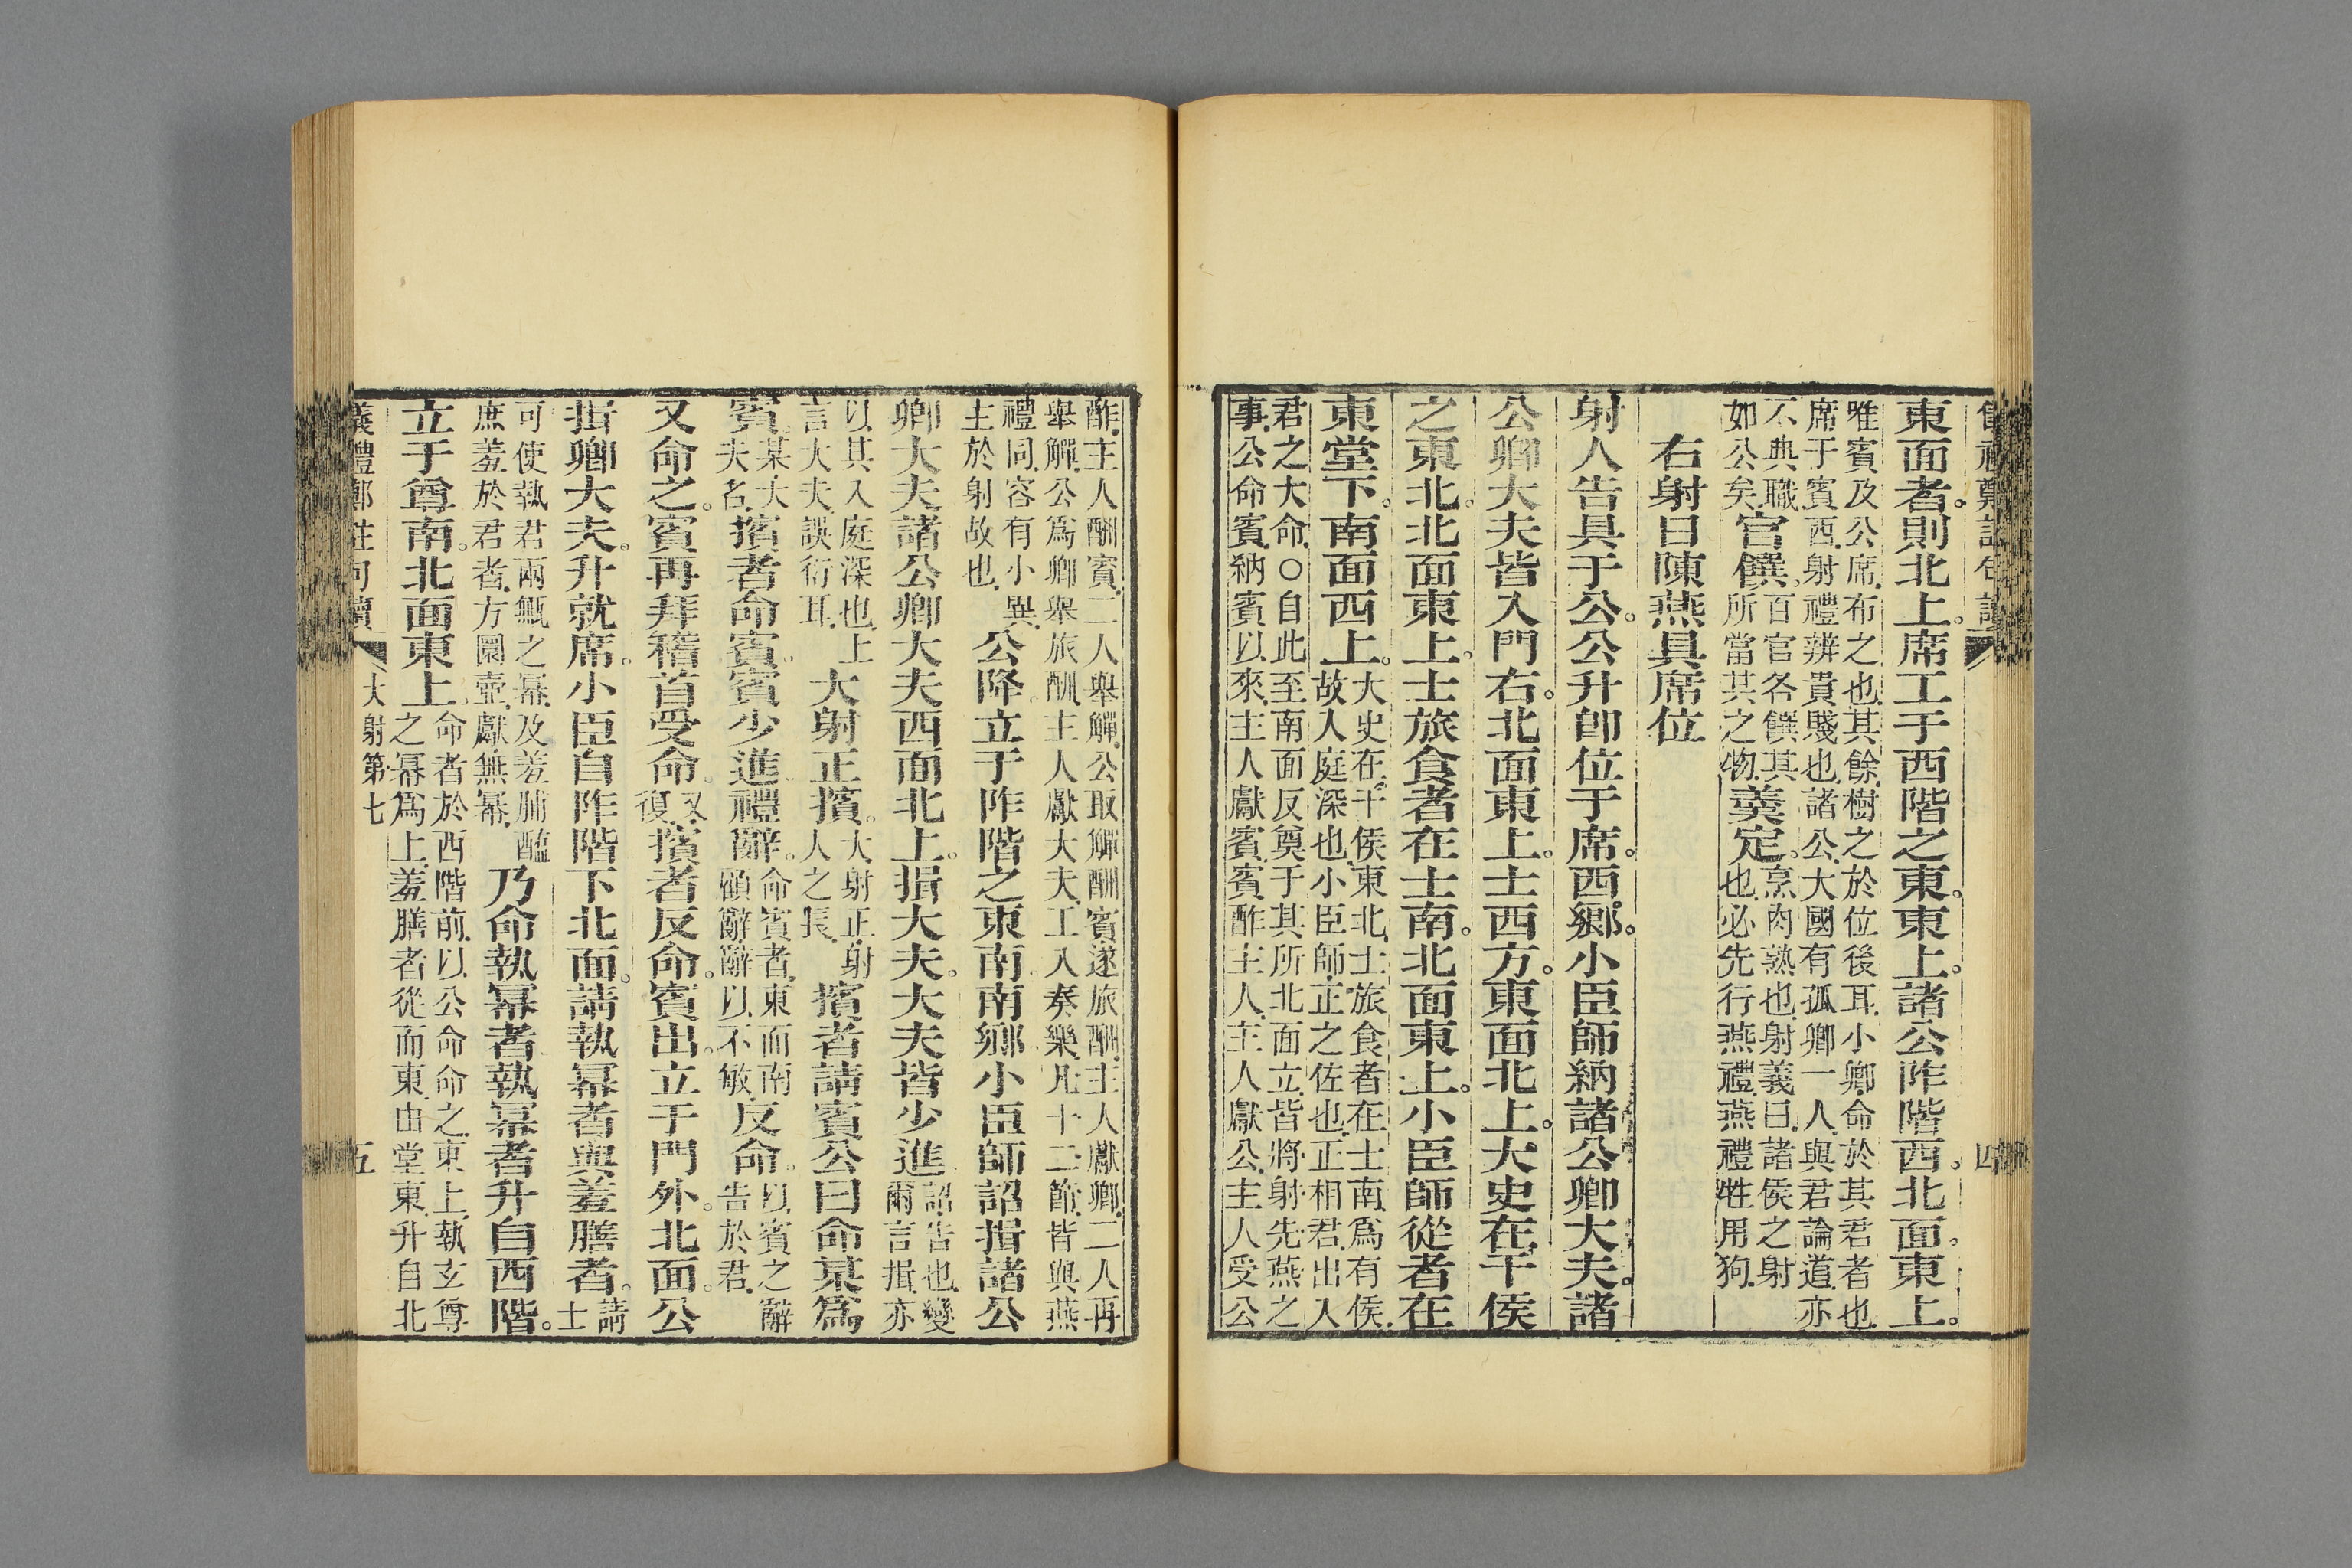 四
東面者。則北上。席工于西階之東。東上。諸公阼階西。北面。東上。
唯賓及公席,布之也,其餘樹之於位後耳,小卿,命於其君者也,
席于賓西,射禮辨貴賤也,諸公,大國有孤卿一人,與君論道,亦
不典職,如公矣,官饌。百官各饌其所當其之物,羹定。烹肉熟也,射義曰,諸侯之射也,必先行燕禮,燕禮牲用狗,
右射日陳燕具席位
射人告具于公。公升卽位于席。西鄉。小臣師納諸公卿大夫。諸
公卿大夫皆入門右。北面東上。士西方。東面北上。大史在干侯
之東北。北面東上。士旅食者在士南。北面東上。小臣師從者在
東堂下。南面西上。大史在干侯東北,士旅食者在士南,爲有侯,故入庭深也,小臣師,正之佐也,正相君,出入
君之大命,○自此至南面反奠于其所北面立,皆將射先燕之
事,公命賓,納賓以來,主人獻賓,賓酢主人,主人獻公,主人受公
酢,主人酬賓,二人舉觶,公取觶酬賓遂旅酬,主人獻卿,二人再
舉觶,公爲卿舉旅酬,主人獻大夫,工入奏樂,凡十二節,皆與燕
禮同,容有小異,主於射故也,公降。立于阼階之東南。南鄉。小臣師詔揖諸公
卿大夫諸公卿大夫西面北上。揖大夫。大夫皆少進。詔告也,變爾言揖,亦
以其入庭深也,上言大夫,誤衍耳,大射正擯。大射正,射人之長,擯者請賓公曰命某爲
賓。某,大夫名,擯者命賓。賓少進。禮辭。命賓者,東面南顧,辭辭以不敏,反命。以賓之辭告於君,
又命之。賓再拜稽首受命。又復,擯者反命。賓出。立于門外。北面。公
揖卿大夫。升就席。小臣自阼階下北面。請執冪者與羞膳者。請士
可使執君兩甒之冪,及羞脯醢庶羞於君者,方圜壺獻無冪,乃命執冪者執冪者升自西階。
立于尊南。北面東上。命者於西階前,以公命命之,東上,執玄尊之冪爲上,羞膳者從而東,由堂東,升自北
儀禮鄭註句讀 大射第七 五